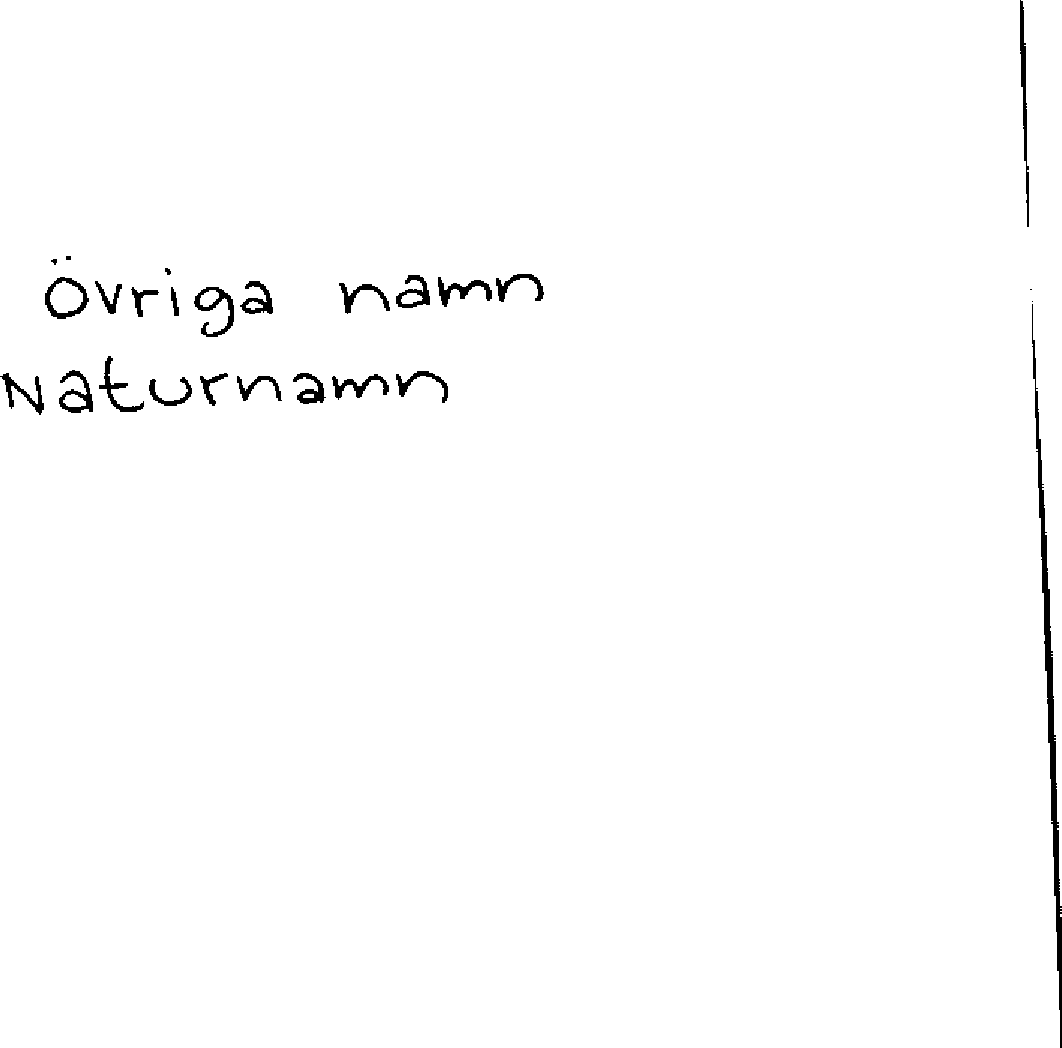 Övriga namn
Naturnamn